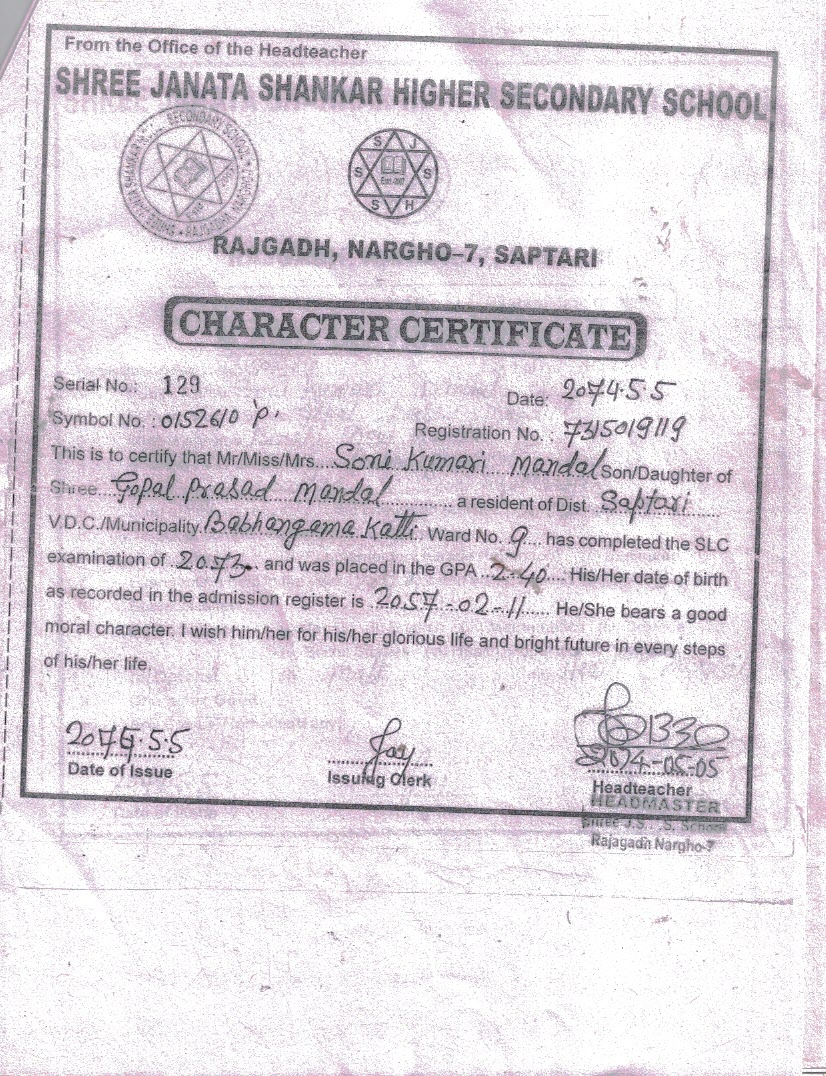 From the Office of the Headteacher
SHREE JANATA SHANKAR HIGHER SECONDARY SCHOOL
S J S S S H
Estd. 2007
RAJGADH, NARGHO-7, SAPTARI
CHARACTER CERTIFICATE
Serial No.: 129 Date: 2074.5.5
Symbol No. : 0152610 'P' Registration No. : 7315019119
This is to certify that Mr/Miss/Mrs....Soni Kumari Mandal Son/Daughter of
Shree...Gopal Prasad Mandal............... a resident of Dist. Saptari......
V.D.C./Municipality.Babhangama Katti. Ward No. 9.... has completed the SLC
examination of .2073.. and was placed in the GPA ..2.40.... His/Her date of birth
as recorded in the admission register is .2057-02-11...... He/She bears a good
moral character. I wish him/her for his/her glorious life and bright future in every steps
of his/her life.
2074.5.5 1330
2074-05-05
Date of Issue Issuing Clerk Headteacher
HEADMASTER
Shree J.S. S. School
Rajagadh Nargho-7